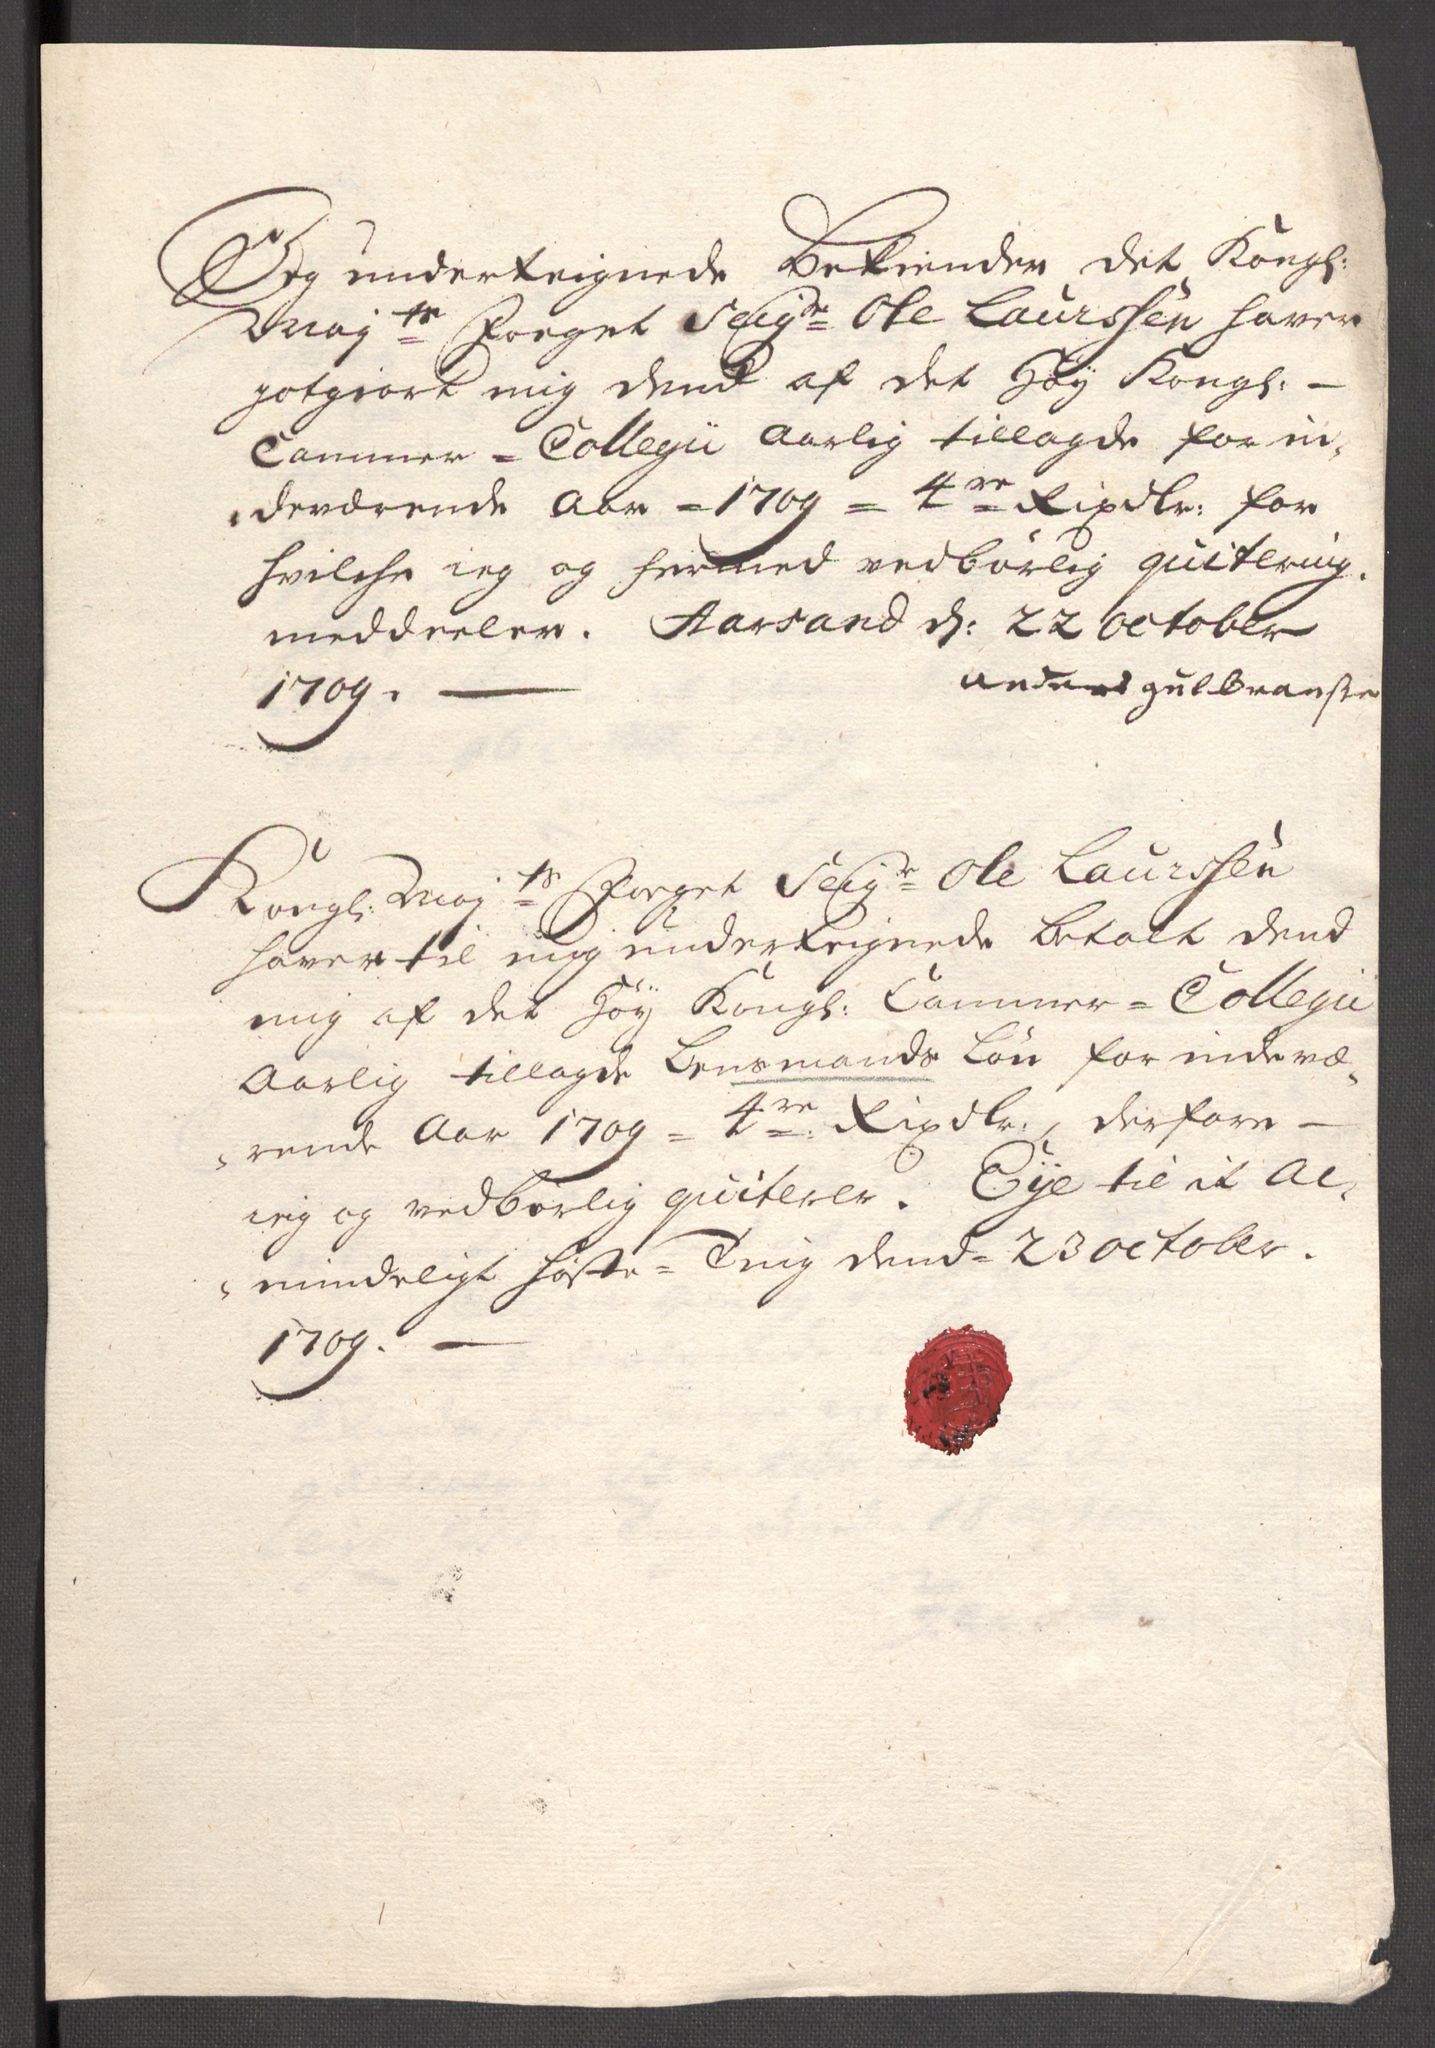 Jeg underteignede Bekiender det Kongl:
May:ts Foeget Seigr Ole Laurssen haver
gotgiort mig dend af det Høy Kongl: –
Cammer = Collegii Aarlig tillagde for in,
,deværende Aar = 1709 = 4re Rixdlr: for
hvilche ieg og hermed vedbørlig quitering.
meddeeler. Aarsand d: 22 October
1709. —
anders gulbransen
Kongl: May:ts Foeget Seigr Ole Laurssen
haver til mig underteignede betalt dend
mig af det Høy Kongl: Cammer = Collegii
Aarlig tillagde Lensmands Løn for indevæ,
,rende Aar 1709 = 4re: Rixdlr:, derfore –
ieg og vedbørlig quiterer. Eye til it Al,
,mindeligt Høste = Ting dend = 23 October.
1709. —